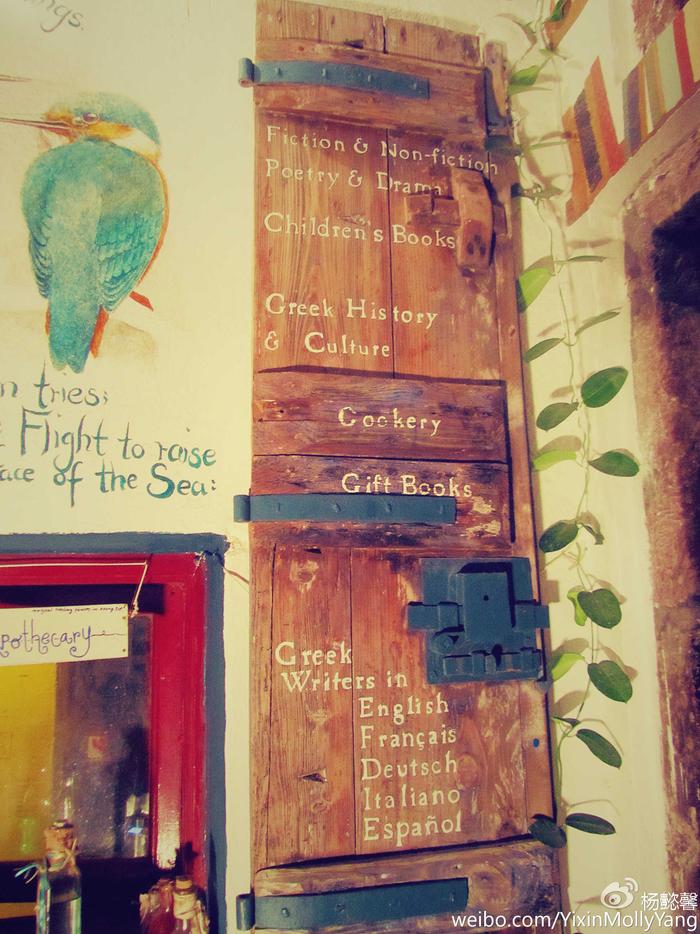 ngs.
n tries;
Flight to raise
ace of the Sea:
pothecary
Fiction & Non-fiction
Poetry & Drama
Children's Books
Greek History
& Culture
Cookery
Gift Books
Greek
Writers in
English
Français
Deutsch
Italiano
Español
杨懿馨
weibo.com/YixinMollyYang